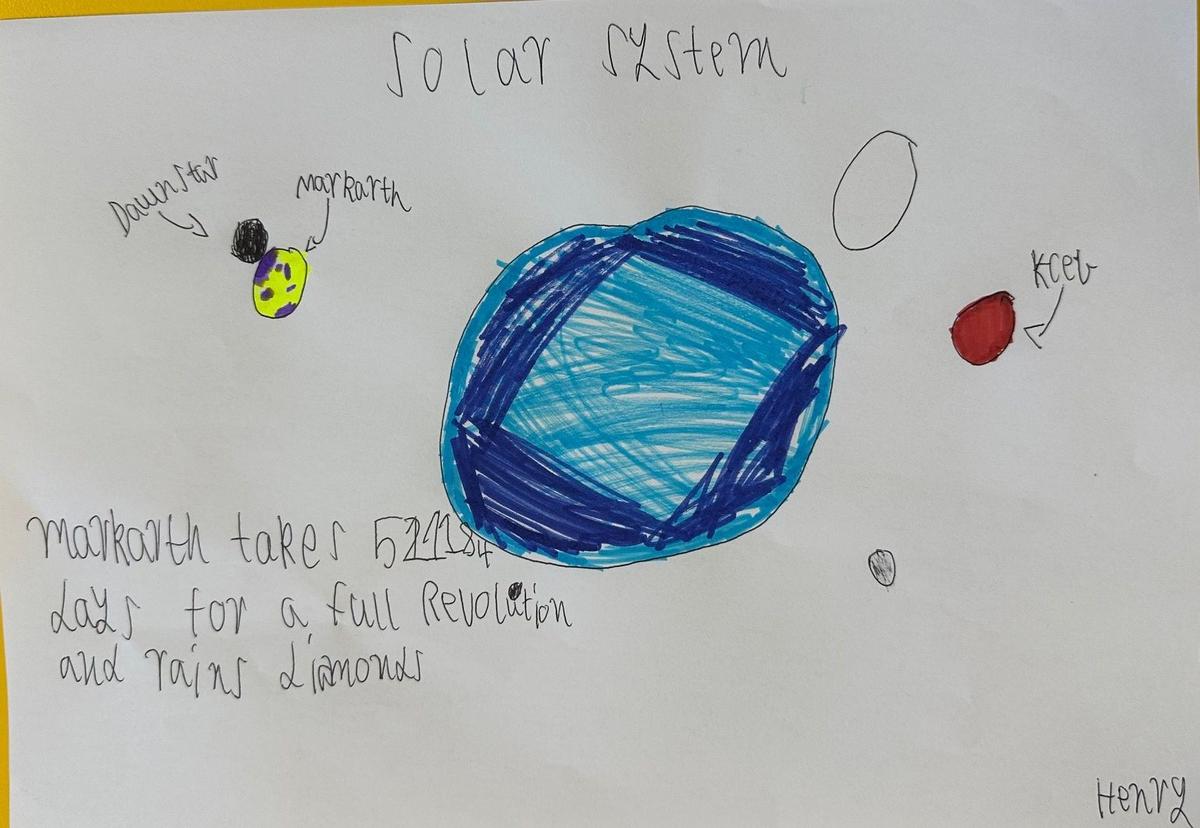 Solar System
Dawnstar
Markarth
Kceb
Markarth takes
days for a full Revolution
and rains diamonds
Henry